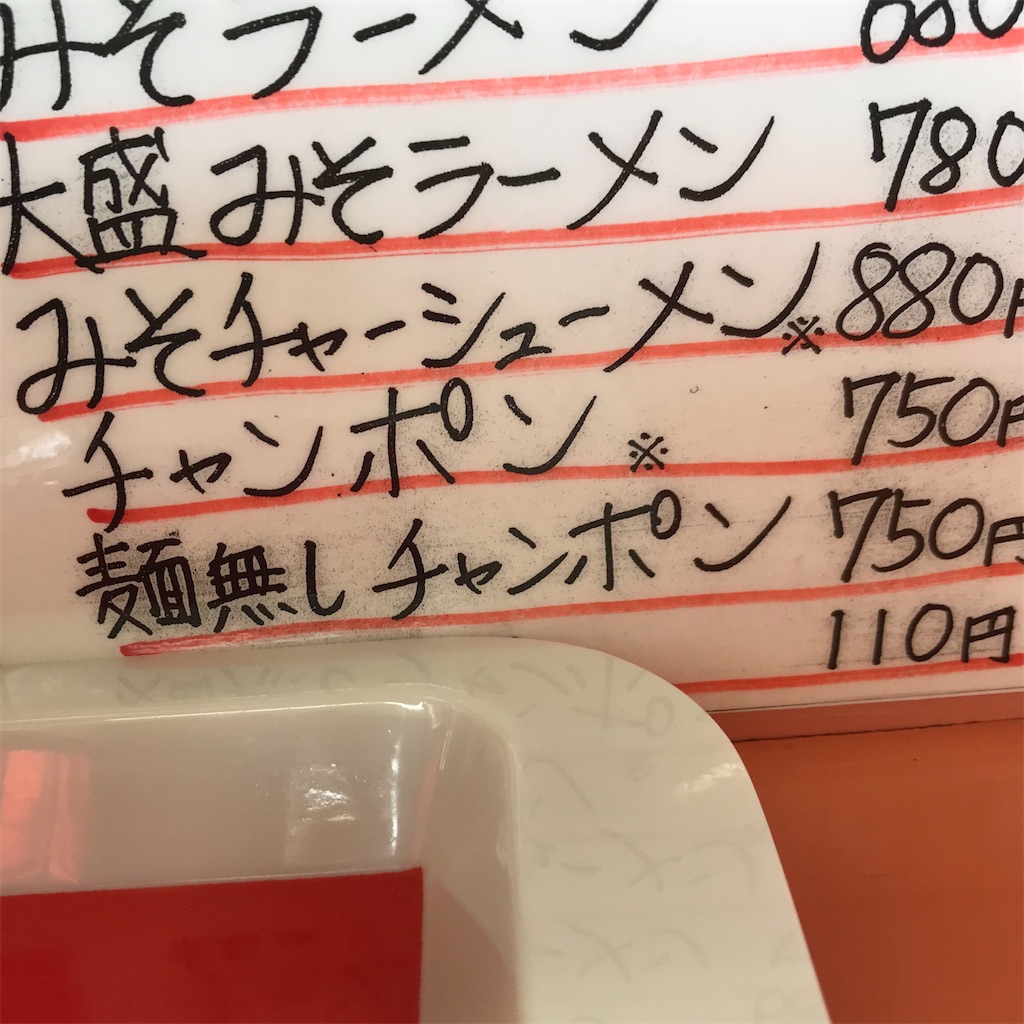 みそラーメン 680
大盛みそラーメン 780
みそチャーシューメン※ 880円
チャンポン ※ 750円
麺無しチャンポン 750円
110円